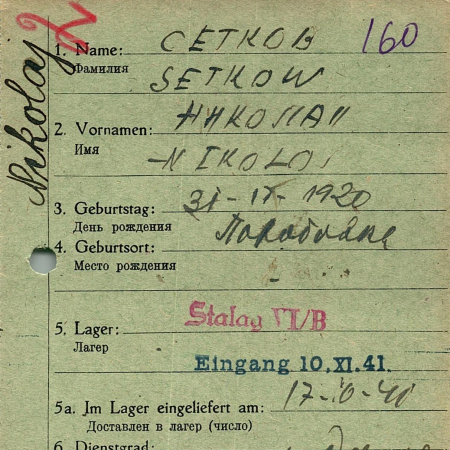 Nikolaj
2
160
1. Name: СЕТКОВ
Фамилия
SETKOW
2. Vornamen: НИКОЛАЙ
Имя
NIKOLOI
3. Geburtstag: 1920
День рождения
4. Geburtsort:
Место рождения
5. Lager: Stalag VI/B
Лагер
Eingang 10.XI.41.
5a. Im Lager eingeliefert am: 17-10-41
Доставлен в лагер (число)
6. Dienstgrad: